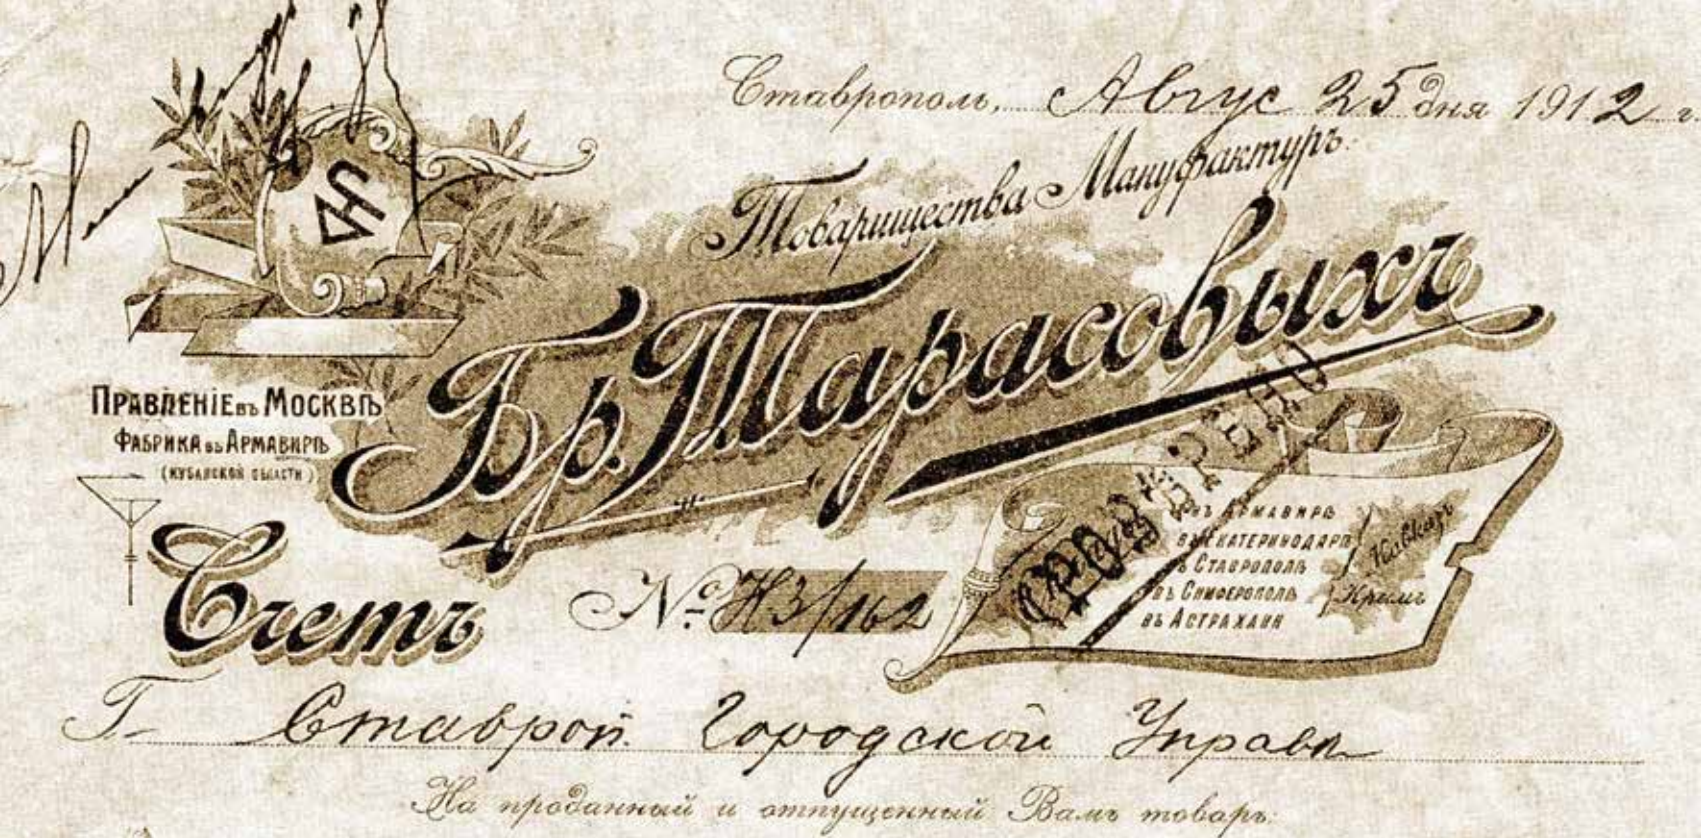 Ставрополь, Авгус 25 дня 1912 г.
Товарищества Мануфактуръ
Бр. Тарасовыхъ
Правленіе въ Москвѣ
Фабрика въ Армавирѣ
(Кубанской области)
въ Армавирѣ
въ Екатеринодарѣ
въ Ставрополѣ
Кавказъ
въ Симферополѣ
Крымъ
въ Астрахани
Счетъ
№
Г. Ставроп. Городской Управѣ
На проданный и отпущенный Вамъ товаръ: